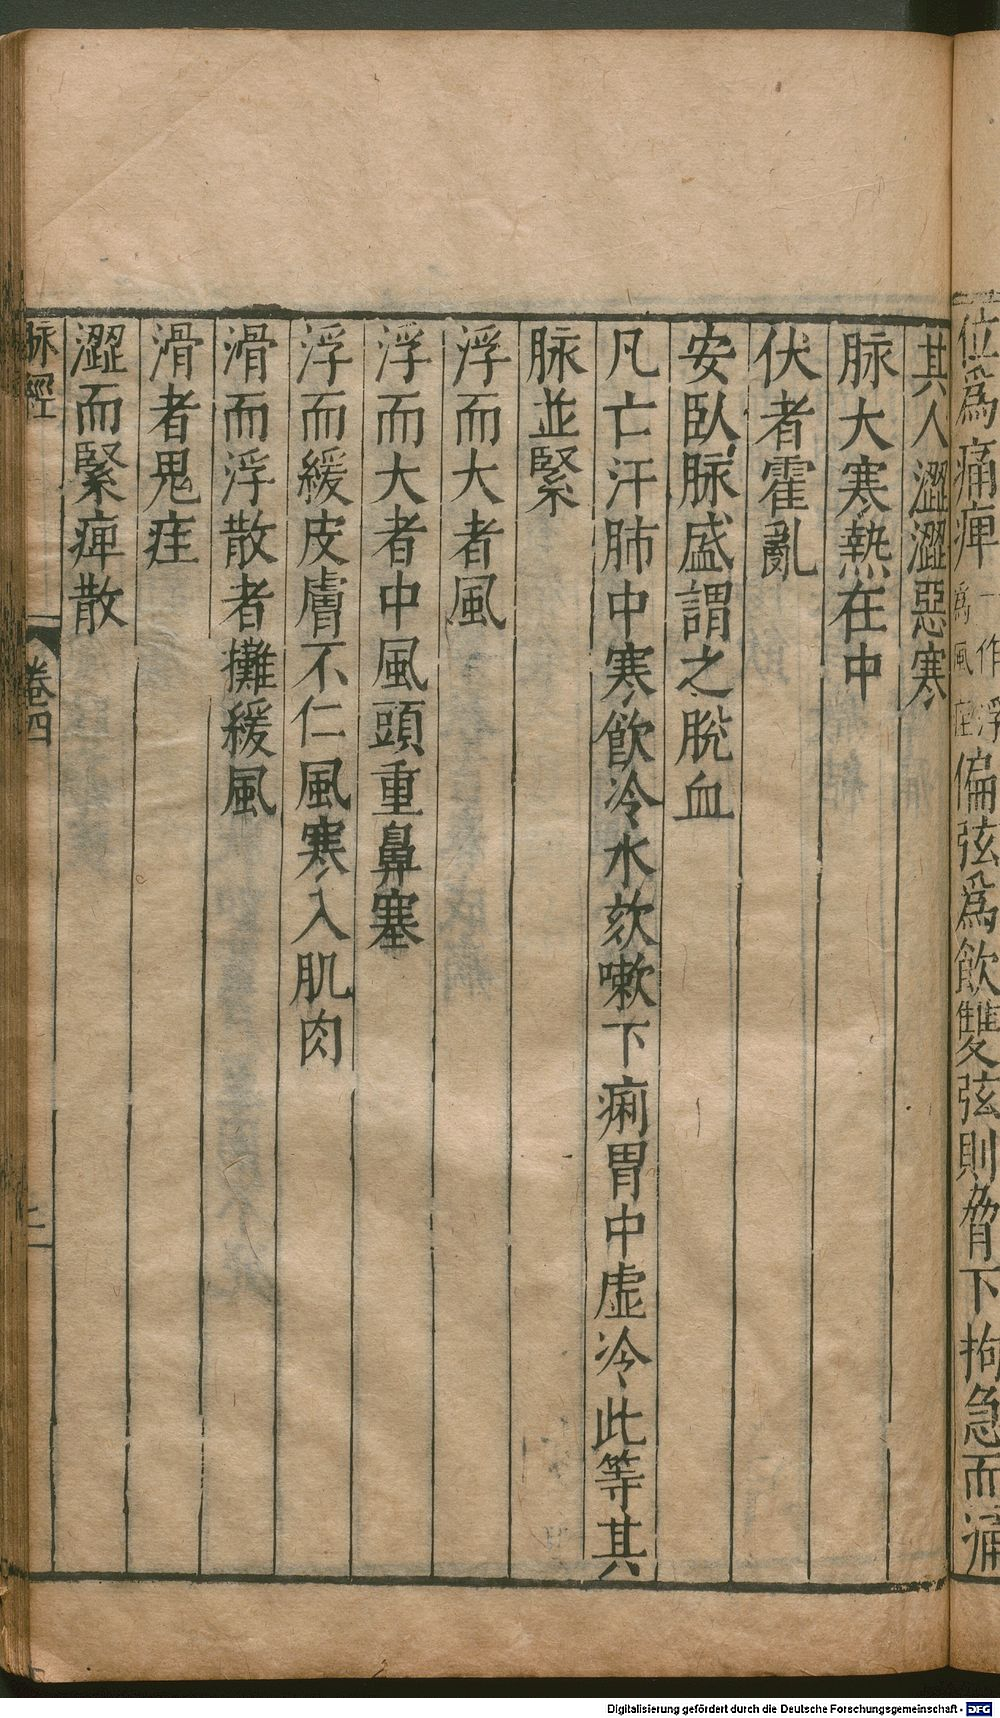 位爲痛痺一作浮爲風疰偏弦爲飲雙弦則脅下拘急而痛
其人澀澀惡寒
脉大寒熱在中
伏者霍亂
安臥脉盛謂之脫血
凡亡汗肺中寒飲冷水欬嗽下痢胃中虛冷此等其
脉並緊
浮而大者風
浮而大者中風頭重鼻塞
浮而緩皮膚不仁風寒入肌肉
滑而浮散者攤緩風
滑者鬼疰
澀而緊痺散
脉經
卷四
Digitalisierung gefördert durch die Deutsche Forschungsgemeinschaft - DFG